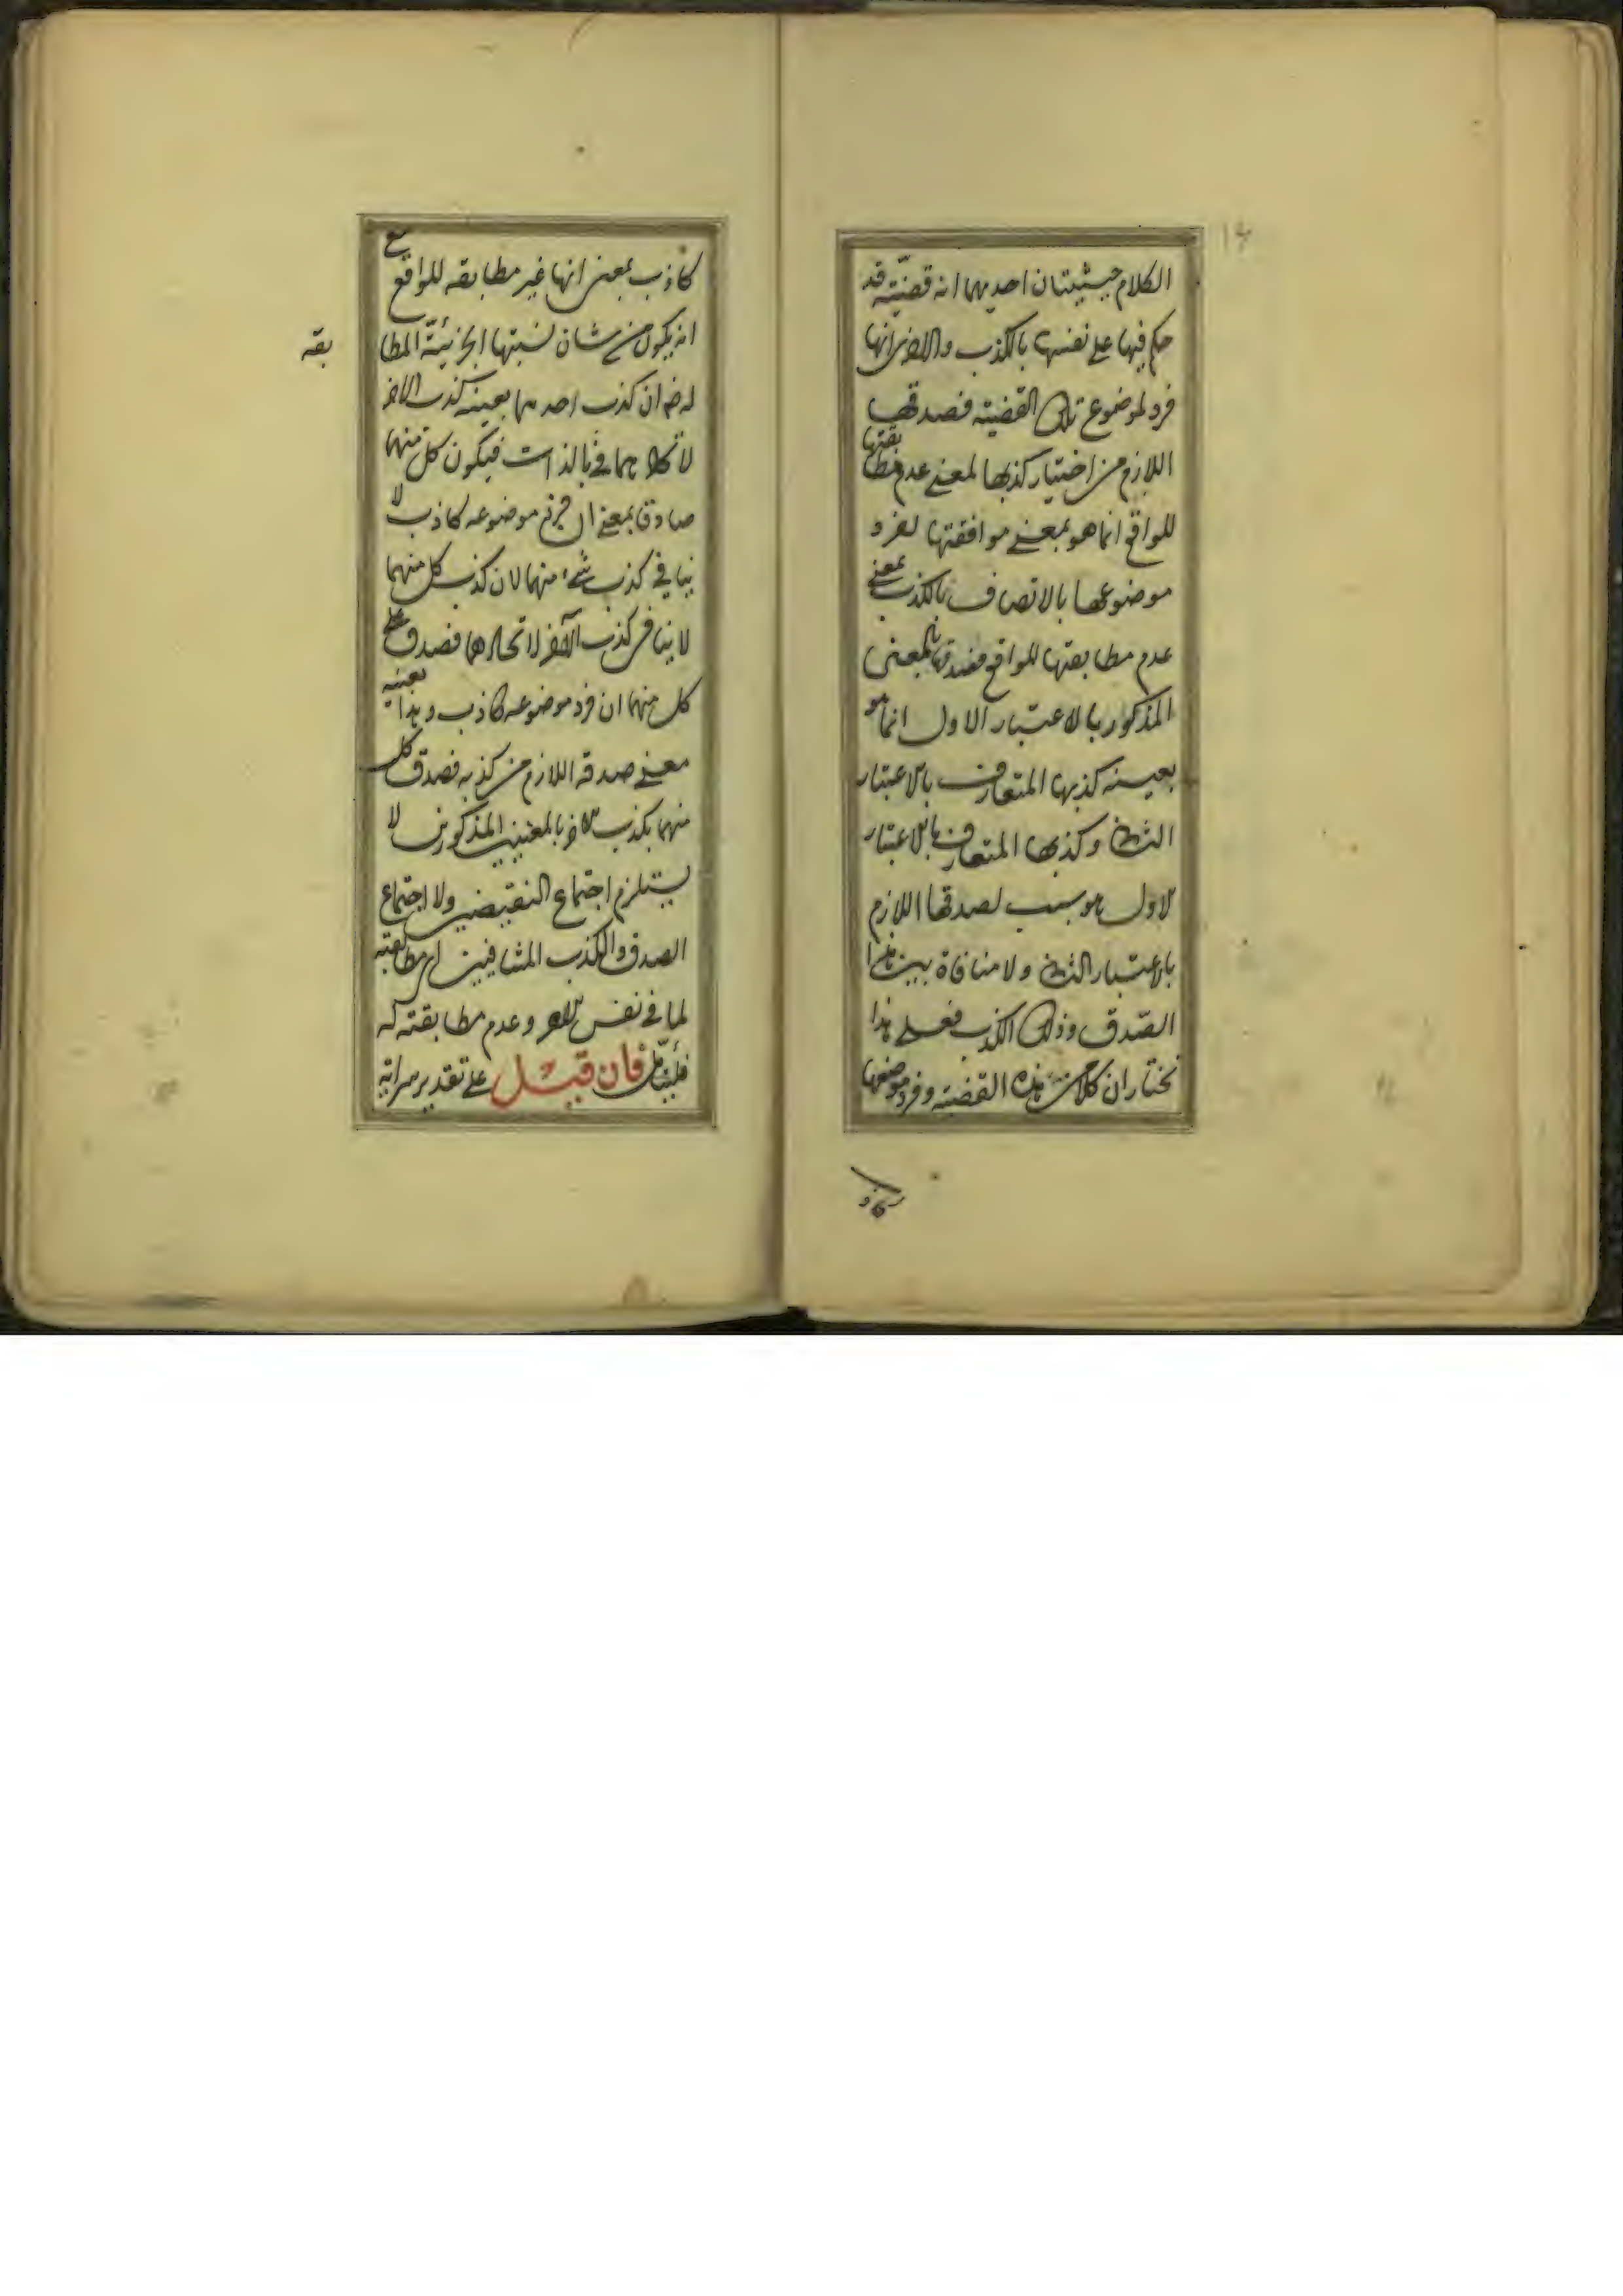 الكلام حيثيتان احديهما انه قضيّته قد
حكم فيها على نفسها بالكذب والاخرى انها
فرد لموضوع تلك القضيته فصدقها
اللازم من اختيار كذبها لمعنى عدم مطابقتها
للواقع انما هو بمعنى موافقتها لفرد
موضوعها بالاتصاف بالكذب بمعنى
عدم مطابقتها للواقع فصدقها بالمعنى
المذكور بالاعتبار الاول انما هو
بعينه كذبها المتعارف بالاعتبار
الثانى وكذبها المتعارف بالاعتبار
الاول هو سبب لصدقها اللازم
بالاعتبار الثانى ولا منافاة بين هذا
الصّدق وذلك الكذب فعلى هذا
نختار ان كلا من هذه القضيته وفرد موضوعها
كاذب بمعنى انها غير مطابقه للواقع مع
انه يكون من شان نسبتها الجزئيّة المطا
بقه
له ضر ان كذب احدهما بعينه كذب الاخر
لاتحادهما فى بالذات فيكون كل منهما
صادق بمعنى ان فرد موضوعه كاذب لا
ينافى كذب شئ منهما لان كذب كل منهما
لا ينافى كذب الآخر لاتحادهما فصدق على
كل منهما ان فرد موضوعه كاذب وهذا بعينه
معنى صدقه اللازم من كذبه فصدق كل
منهما بكذب الاخر بالمعنيين المذكورين لا
يستلزم اجتماع النقيضين ولا اجتماع
الصدق والكذب المتنافيين اى مطابقته
لما فى نفس الامر وعدم مطابقته له
فليتأمّل فان قيل على تقدير سراية